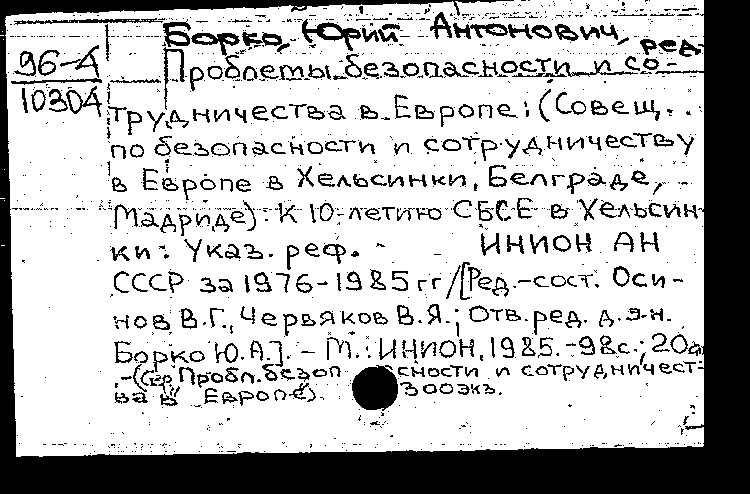 Борко, Юрий Антонович, ред.
96-4
10304
Проблемы безопасности и со-
трудничества в Европе: (Совещ.
по безопасности и сотрудничеству
в Европе в Хельсинки, Белграде,
Мадриде): К 10-летию СБСЕ в Хельсин-
ки: Указ. реф. ИНИОН АН
СССР за 1976-1985 гг/[Ред.-сост. Оси-
нов В.Г., Червяков В.Я.; Отв. ред. д.э.н.
Борко Ю.А.]. - М.: ИНИОН, 1985. - 98с.; 20см
.-(Сер Пробл. безоп сности и сотрудничест-
ва в Европе). 300экз.